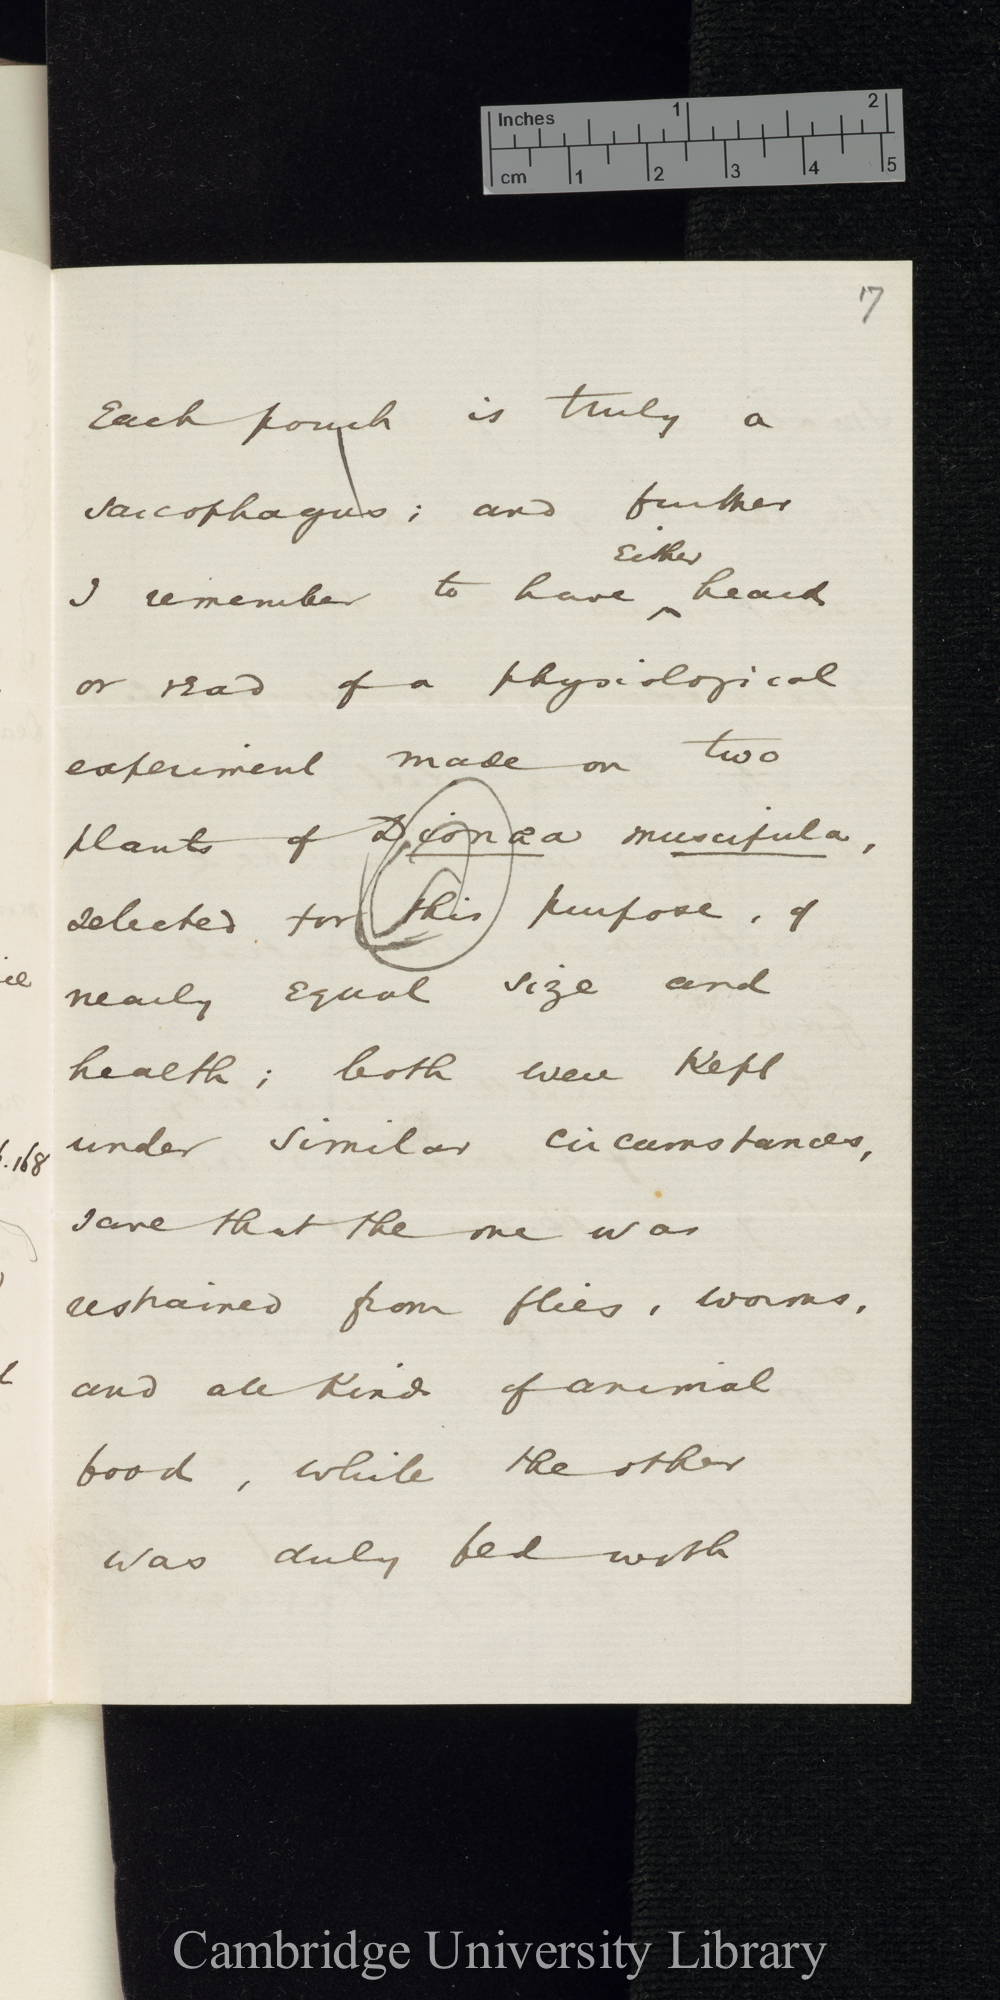 Inches 1 2
cm 1 2 3 4 5
7
Each pouch is truly a
sarcophagus; and further
Either
I remember to have ‸ heard
or read of a physiological
experiment made on two
plants of Dionæa muscipula,
selected for this purpose, of
nearly equal size and
health; both were kept
under similar circumstances,
save that the one was
restrained from flies, worms,
and all kinds of animal
food, while the other
was duly fed with
168
Cambridge University Library